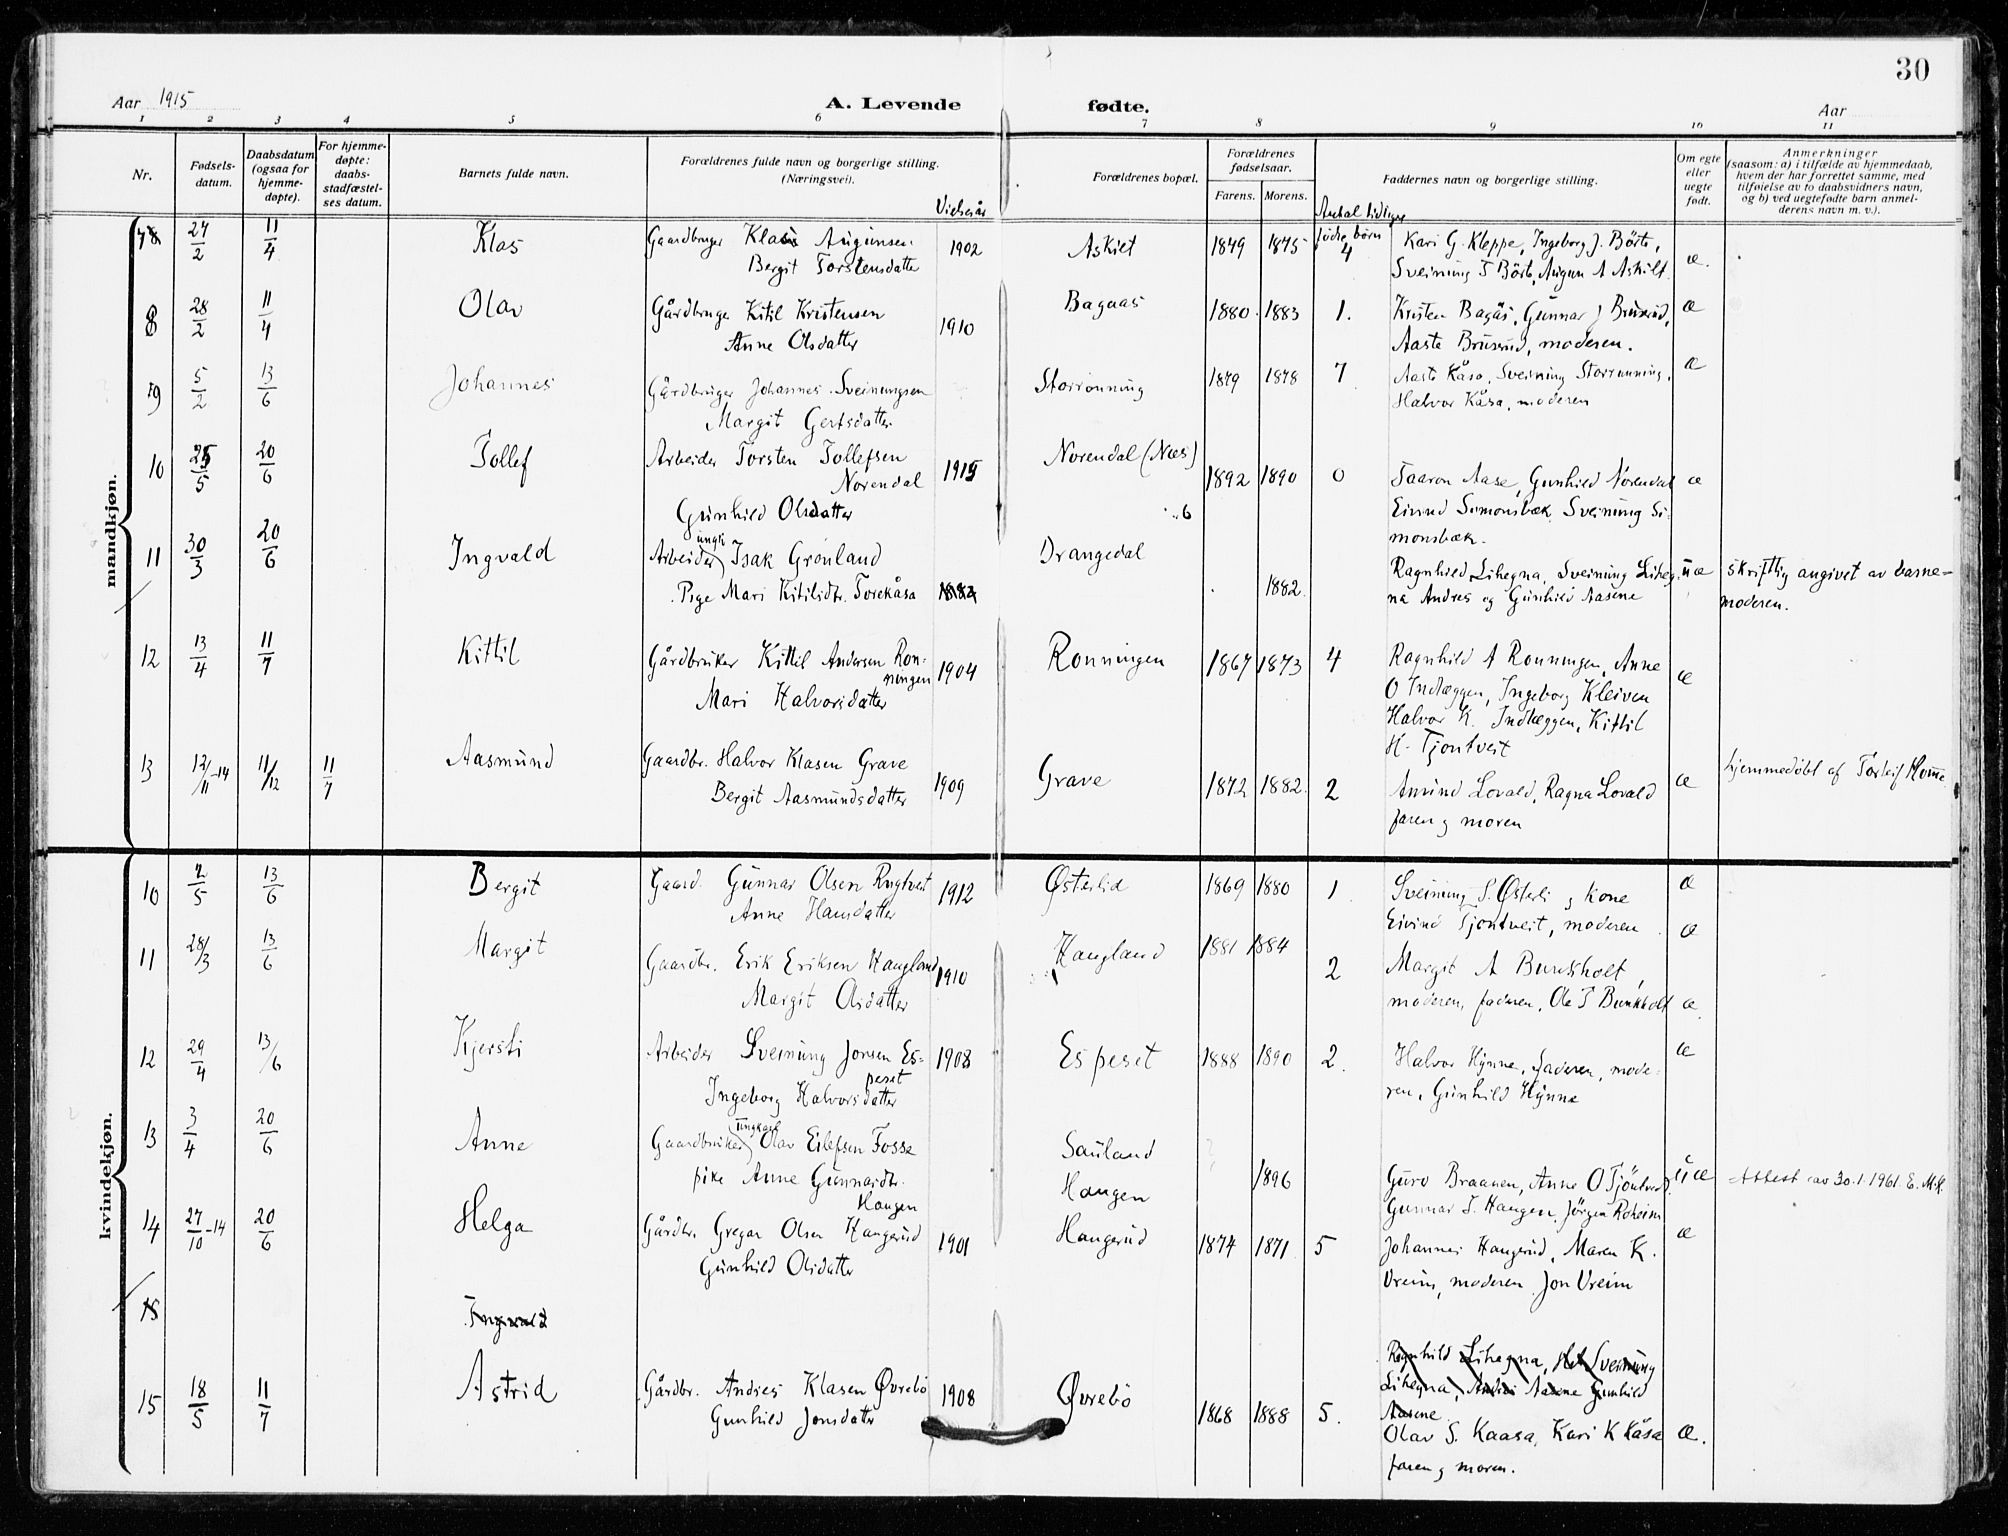 30
Aar 1915
A. Levende fødte.
Aar
1 2 3 4 5 6 7 8 9 10 11
Nr.
Fødsels-
datum.
Daabsdatum
(ogsaa for
hjemme-
døpte).
For hjemme-
døpte:
daabs-
stadfæstel-
ses datum.
Barnets fulde navn.
Forældrenes fulde navn og borgerlige stilling.
(Næringsvei).
Vielsesår
Forældrenes bopæl.
Forældrenes
fødselsaar.
Farens. Morens.
Antal tidligere
fødte børn
Faddernes navn og borgerlige stilling.
Om egte
eller
uegte
født.
Anmerkninger
(saasom: a) i tilfælde av hjemmedaab,
hvem der har forrettet samme, med
tilføielse av to daabsvidners navn,
og b) ved uegtefødte barn anmel-
derens navn m. v.).
mandkjøn.
7 27/2 11/4 Klas Gaardbruger Klas Augunsen 1902 Askilt 1879 1875 4 Kari G. Kleppe, Ingeborg J. Börte, æ.
Bergit Torstensdatter Sveinung T Börte, Augun A Askilt
8 28/2 11/4 Olav Gårdbruger Kitil Kristensen 1910 Bagaas 1880 1883 1. Kristen Bagås, Gunnar J Brusrud, æ
Anne Olsdatter Aaste Brusrud, moderen.
9 5/2 13/6 Johannes Gårdbruger Johannes Sveinungsen Storrønning 1879 1878 7 Aaste Kåsa, Sveinung Storrønning, æ
Margit Gertsdatter Halvor Kåsa, moderen
10 25/5 20/6 Tollef Arbeider Torsten Tollefsen 1915 Nørendal (Næs) 1892 1890 0 Taaron Aase, Gunhild Nørendal æ
Nørendal Eivind Simonsbæk, Sveinung Si-
Gunhild Olsdatter monsbæk.
11 30/3 20/6 Ingvald Arbeider ungk. Isak Grønland Drangedal 1882 Ragnhild Lihegna, Sveinung Liheg- uæ skriftlig angivet av barne-
Pige Mari Kitilsdtr. Torekåsa na Andres og Gunhild Aasene moderen.
12 13/4 11/7 Kittil Gårdbruker Kittil Andersen Røn- 1904 Rønningen 1867 1873 4 Ragnhild A Rønningen, Anne æ
ningen O Indlæggen, Ingeborg Kleiven
Mari Halvorsdatter Halvor K. Indlæggen, Kittil
H. Tjøntveit
13 12/11-14 11/12 11/7 Aasmund Gaardbr. Halvor Klasen Grave 1909 Grave 1872 1882. 2 Anund Lovald, Ragna Lovald æ hjemmedøbt af Torleif Homme
Bergit Aasmundsdatter faren og moren
kvindekjøn.
10 2/5 13/6 Bergit Gaard. Gunnar Olsen Rugtveit 1912 Østerlid 1869 1880 1 Sveinung S. Østerli og kone æ
Anne Hansdatter Eivind Tjøntveit, moderen. æ
11 28/3 13/6 Margit Gaardbr. Erik Eriksen Haugland 1910 Haugland 1881 1884 2 Margit A Bunkholt,
Margit Olsdatter moderen, faderen, Ole T Bunkholt æ
12 29/4 13/6 Kjersti Arbeider Sveinung Jonsen Es- 1908 Espeset 1888 1890 2. Halvor Hynne, faderen, mode- æ
peset ren, Gunhild Hynne
Ingeborg Halvorsdatter
13 3/4 20/6 Anne Gaardbruker ungkarl Olav Eilefsen Fosse Sauland
pike Anne Gunnarsdtr. Haugen Haugen 1896 Guro Braanen, Anne O Tjöntveit, uæ Attest av 30.1.1961. E.M.K.
Gunnar T. Haugen, Jörgen Roheim
14 27/10-14 20/6 Helga Gårdbr. Gregar Olsen Haugerud 1901 Haugerud 1874 1871 5 Johannes Haugerud, Maren K. æ
Gunhild Olsdatter Vreim, moderen, Jon Vreim
15 Ingvald
Ragnhild Lihegna, Sveinung
Lihegna, Andres Aasene Gunhild
Aasene
15 18/5 11/7 Astrid Gårdbr. Andres Klasen Øvrebö 1908 Øvrebö 1868 1888 5. Olav S. Kaasa, Kari K Kåsa æ.
Gunhild Jonsdatter faren og moren.